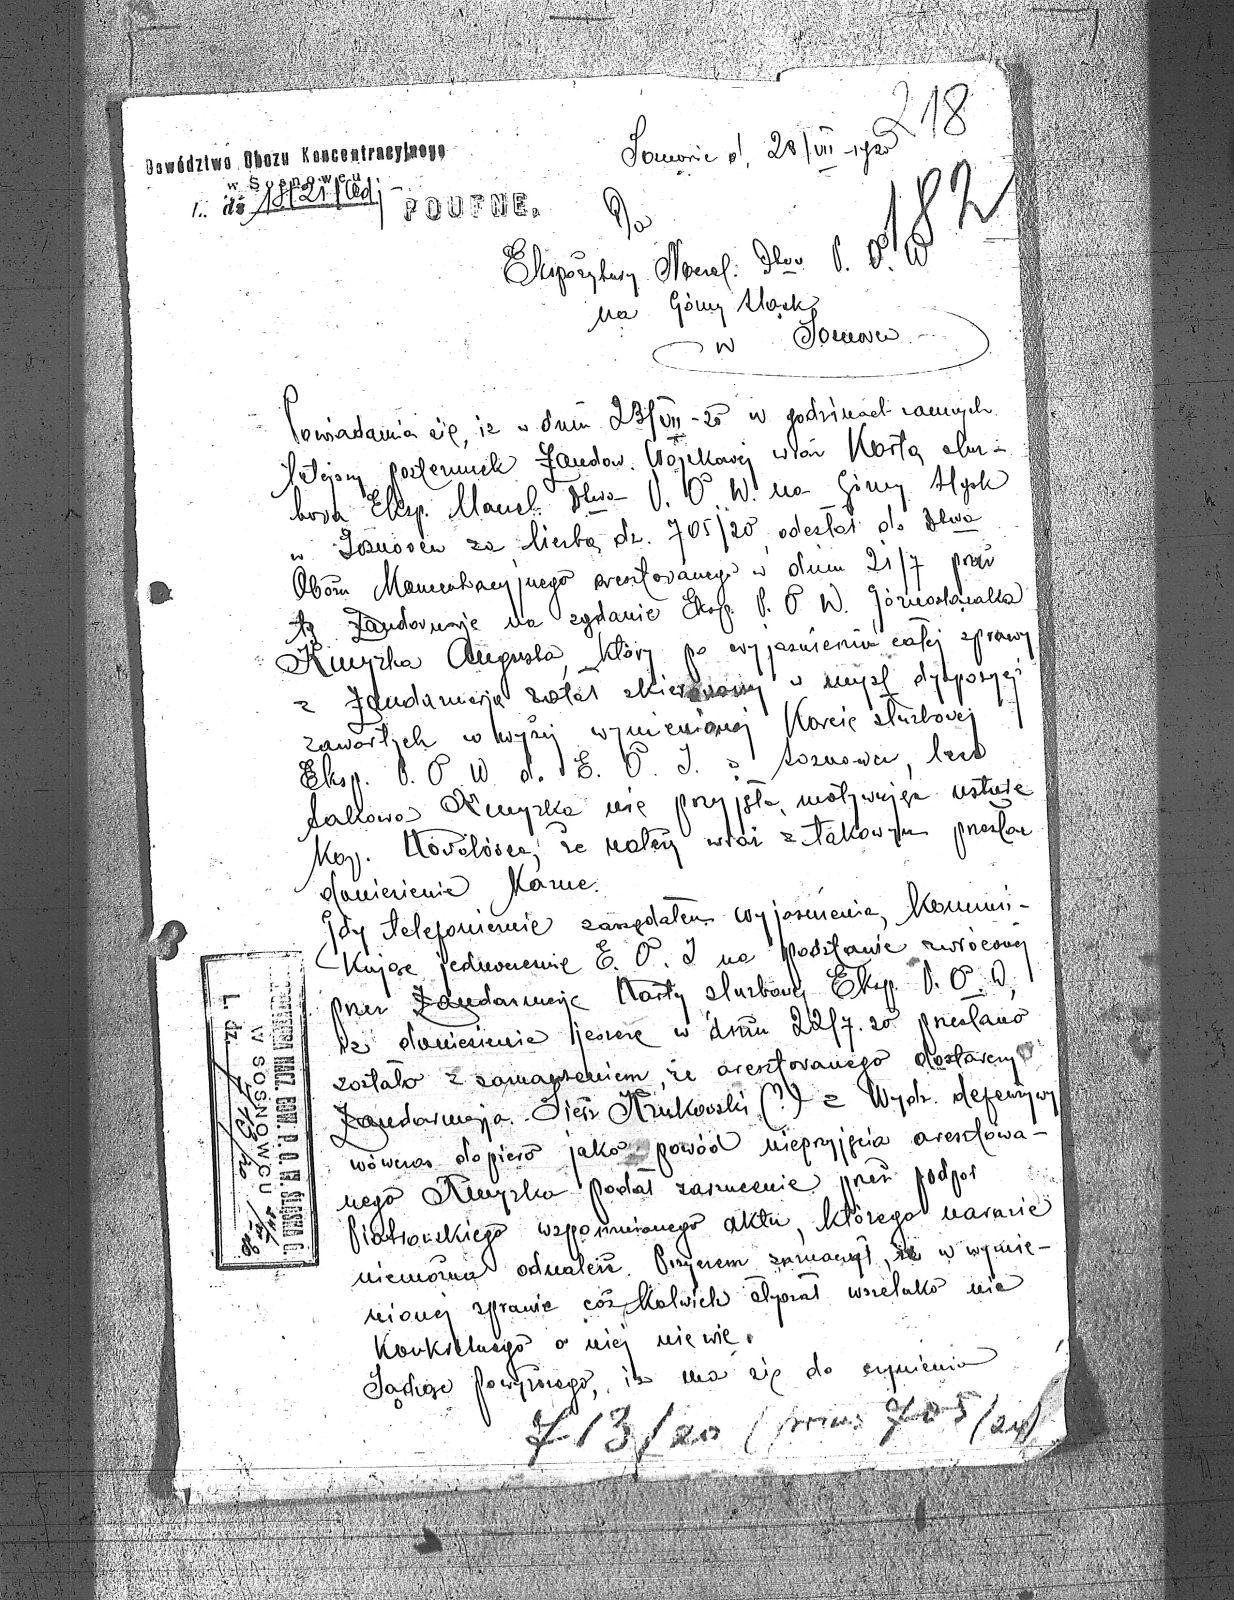 218
Dowództwo Obozu Koncentracyjnego
w Sosnowcu
L. dz 18/21/Adj
POUFNE.
d. 28/VII 1920
182
Do
Ekspozytury Dtwa P. O. W
na Górny Śląsk
w Sosnowcu
Powiadamia się, iż w dniu 23/VII-20 w godzinach rannych
tutejszy posterunek Żandar. Wojskowej wraz Kartą służ-
bową Eksp. Dtwa P. O. W. na Górny Śląsk
w Sosnowcu za liczbą dz. 705/20 odesłał do Dtwa
Obozu Koncentracyjnego aresztowanego w dniu 21/7 przez
tą Żandarmerję na żądanie Eksp. P. O. W. Górnoślązaka
Kmyzka Augusta, który po wyjaśnieniu całej sprawy
z Żandarmerją został skierowany w myśl dyspozycji
zawartych w wyżej wymienionej Karcie służbowej
Eksp. P. O. W. do E. O. J. w Sosnowcu, lecz
takowa Kmyzka nie przyjęła, motywując ustnie
że należy wraz z takowym przesłać
doniesienie Karne.
Gdy telefonicznie zażądałem wyjaśnienia, Komuni-
kując jednocześnie E. O. J. na podstawie zwróconej
przez Żandarmerję Karty służbowej Eksp. P. O. W,
iż doniesienie jeszcze w dniu 22/7.20 przesłano
zostało z zaznaczeniem, że aresztowanego dostarczy
Żandarmerja. Sierż Krukowski (?) z Wydz. defensywy
wówczas dopiero jako powód nieprzyjęcia aresztowa-
nego Kmyzka podał zarzucenie przez podpor
Piotrowskiego wspomnianego aktu, którego narazie
niemożna odnaleźć. Przyczem zaznaczył, że w wymie-
nionej sprawie cośkolwiek słyszał wszelako nic
Konkretnego o niej nie wie.
Sądząc powyższego, iż ma się do czynienia
713/20 ( 705/20)
EKSPOZYTURA NACZ. DOW. P. O. W. ŚLĄSKA G.
W SOSNOWCU
L. dz. 713/20